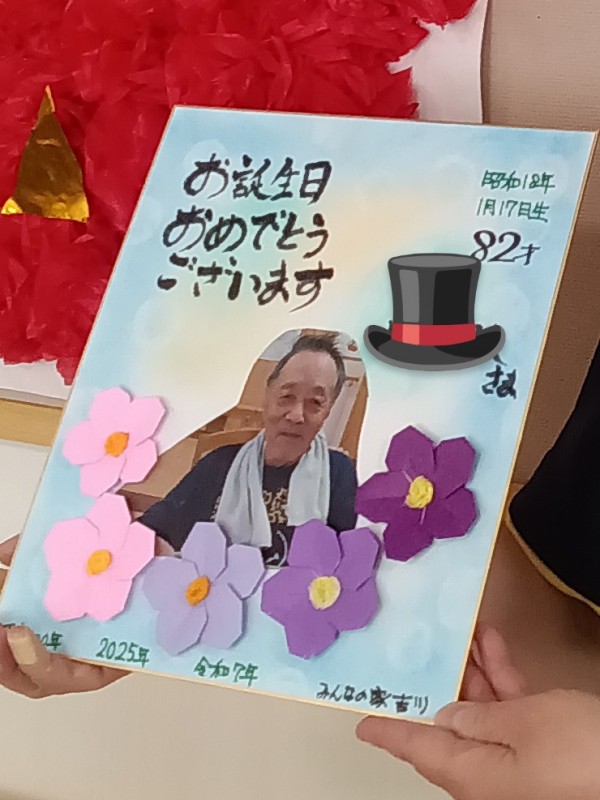 お誕生日
おめでとう
ございます
昭和18年
1月17日生
82才
さま
2025年
令和7年
みんなの家 吉川